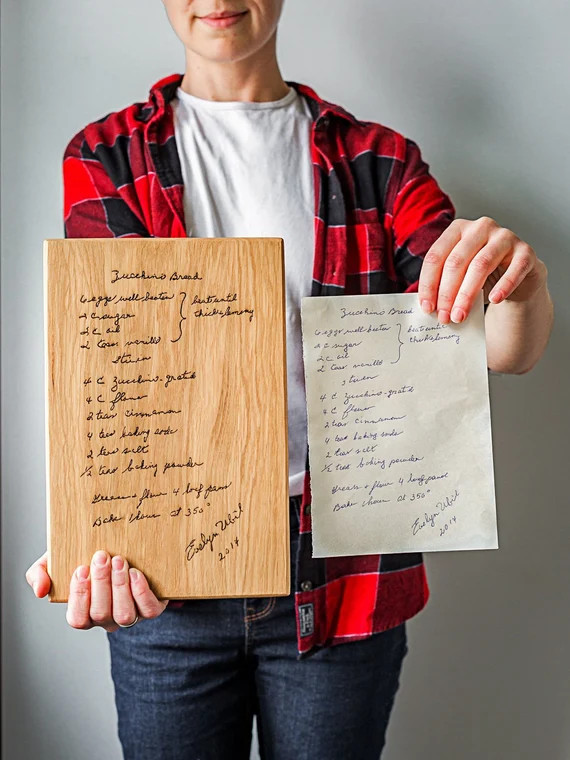 Zucchini Bread
6 eggs well beaten beat until
4 C sugar thick & lemony
2 C oil
2 teas vanilla
Stir in
4 C Zucchini - grated
4 C flour
2 teas cinnamon
4 teas baking soda
2 teas salt
1/2 teas baking powder
Grease & flour 4 loaf pans
Bake 1 hour at 350°
Evelyn
2014
Zucchini Bread
6 eggs well beaten beat until
4 C sugar thick & lemony
2 C oil
2 teas vanilla
Stir in
4 C Zucchini - grated
4 C flour
2 teas cinnamon
4 teas baking soda
2 teas salt
1/2 teas baking powder
Grease & flour 4 loaf pans
Bake 1 hour at 350°
Evelyn
2014